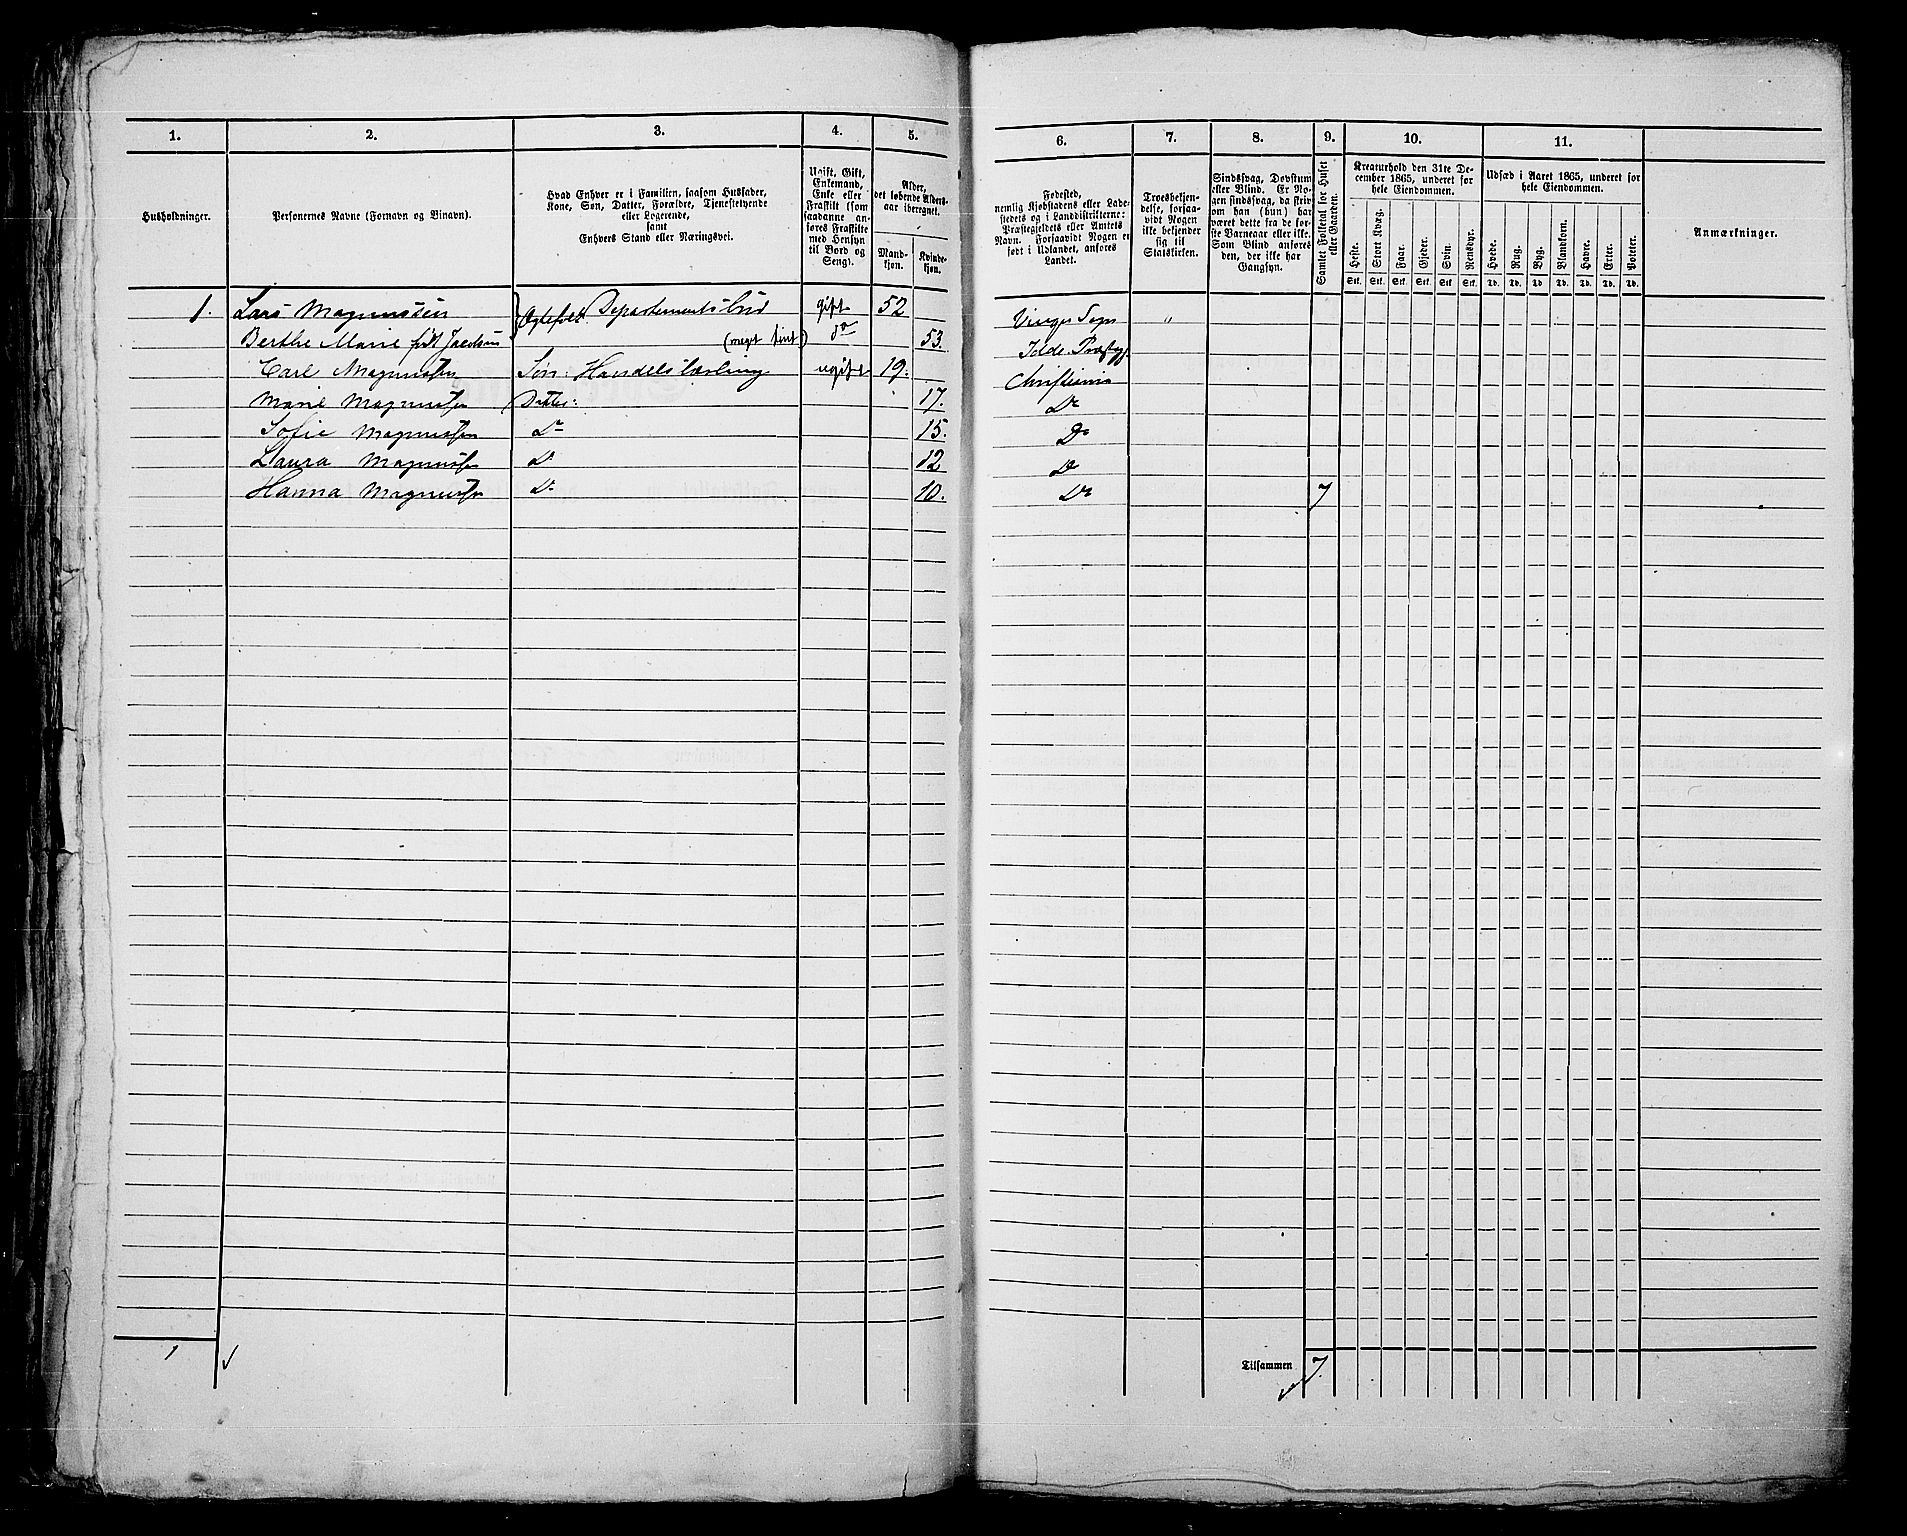 1.
2.
3.
4.
5.
Husholdninger.
Personernes Navne (Fornavn og Binavn).
Hvad Enhver er i Familien, saasom Husfader,
Kone, Søn, Datter, Forældre, Tjenestetyende
eller Logerende,
samt
Enhvers Stand eller Næringsvei.
Ugift, Gift,
Enkemand,
Enke eller
Fraskilt (som
saadanne an-
føres Fraskilte
med Hensyn
til Bord og
Seng).
Alder,
det løbende Alders-
aar iberegnet.
Mand-
kjøn.
Kvinde-
kjøn.
1. Lars Magnussen Ægtefolk Departementsbud gift 52
Berthe Marie født Jacobsen do 53.
Carl Magnussen Søn: Handelslærling ugift 19.
Marie Magnussen Datter: 17.
Sofie Magnussen Do 15.
Laura Magnussen D 12
Hanna Magnussen Do 10.
1
6.
7.
8.
9.
10.
11.
Fødested,
nemlig Kjøbstadens eller Lade-
stedets og i Landdistrikterne:
Præstegjeldets eller Amtets
Navn. Forsaavidt Nogen er
født i Udlandet, anføres
Landet.
Troesbekjen-
delse, forsaa-
vidt Nogen
ikke bekjender
sig til
Statskirken.
Sindssvag, Døvstum
eller Blind. Er No-
gen sindssvag, da skriv
om han (hun) har
været dette fra de før-
ste Barneaar eller ikke.
Som Blind anføres
den, der ikke har
Gangsyn.
Samlet Folketal for Huset
eller Gaarden.
Kreaturhold den 31te De-
cember 1865, underet for
hele Eiendommen.
Heste.
Stort Kvæg.
Faar.
Gjeder.
Svin.
Rensdyr.
Stk. Stk. Stk. Stk. Stk. Stk.
Udsæd i Aaret 1865, underet for
hele Eiendommen.
Hvede.
Rug.
Byg.
Blandkorn.
Havre.
Erter.
Poteter.
Td. Td. Td. Td Td. Td. Td.
Anmærkninger.
Vinger Sogn "
Præstegj.
Christiania
Do
Do
Do
Do 7
Tilsammen 7.